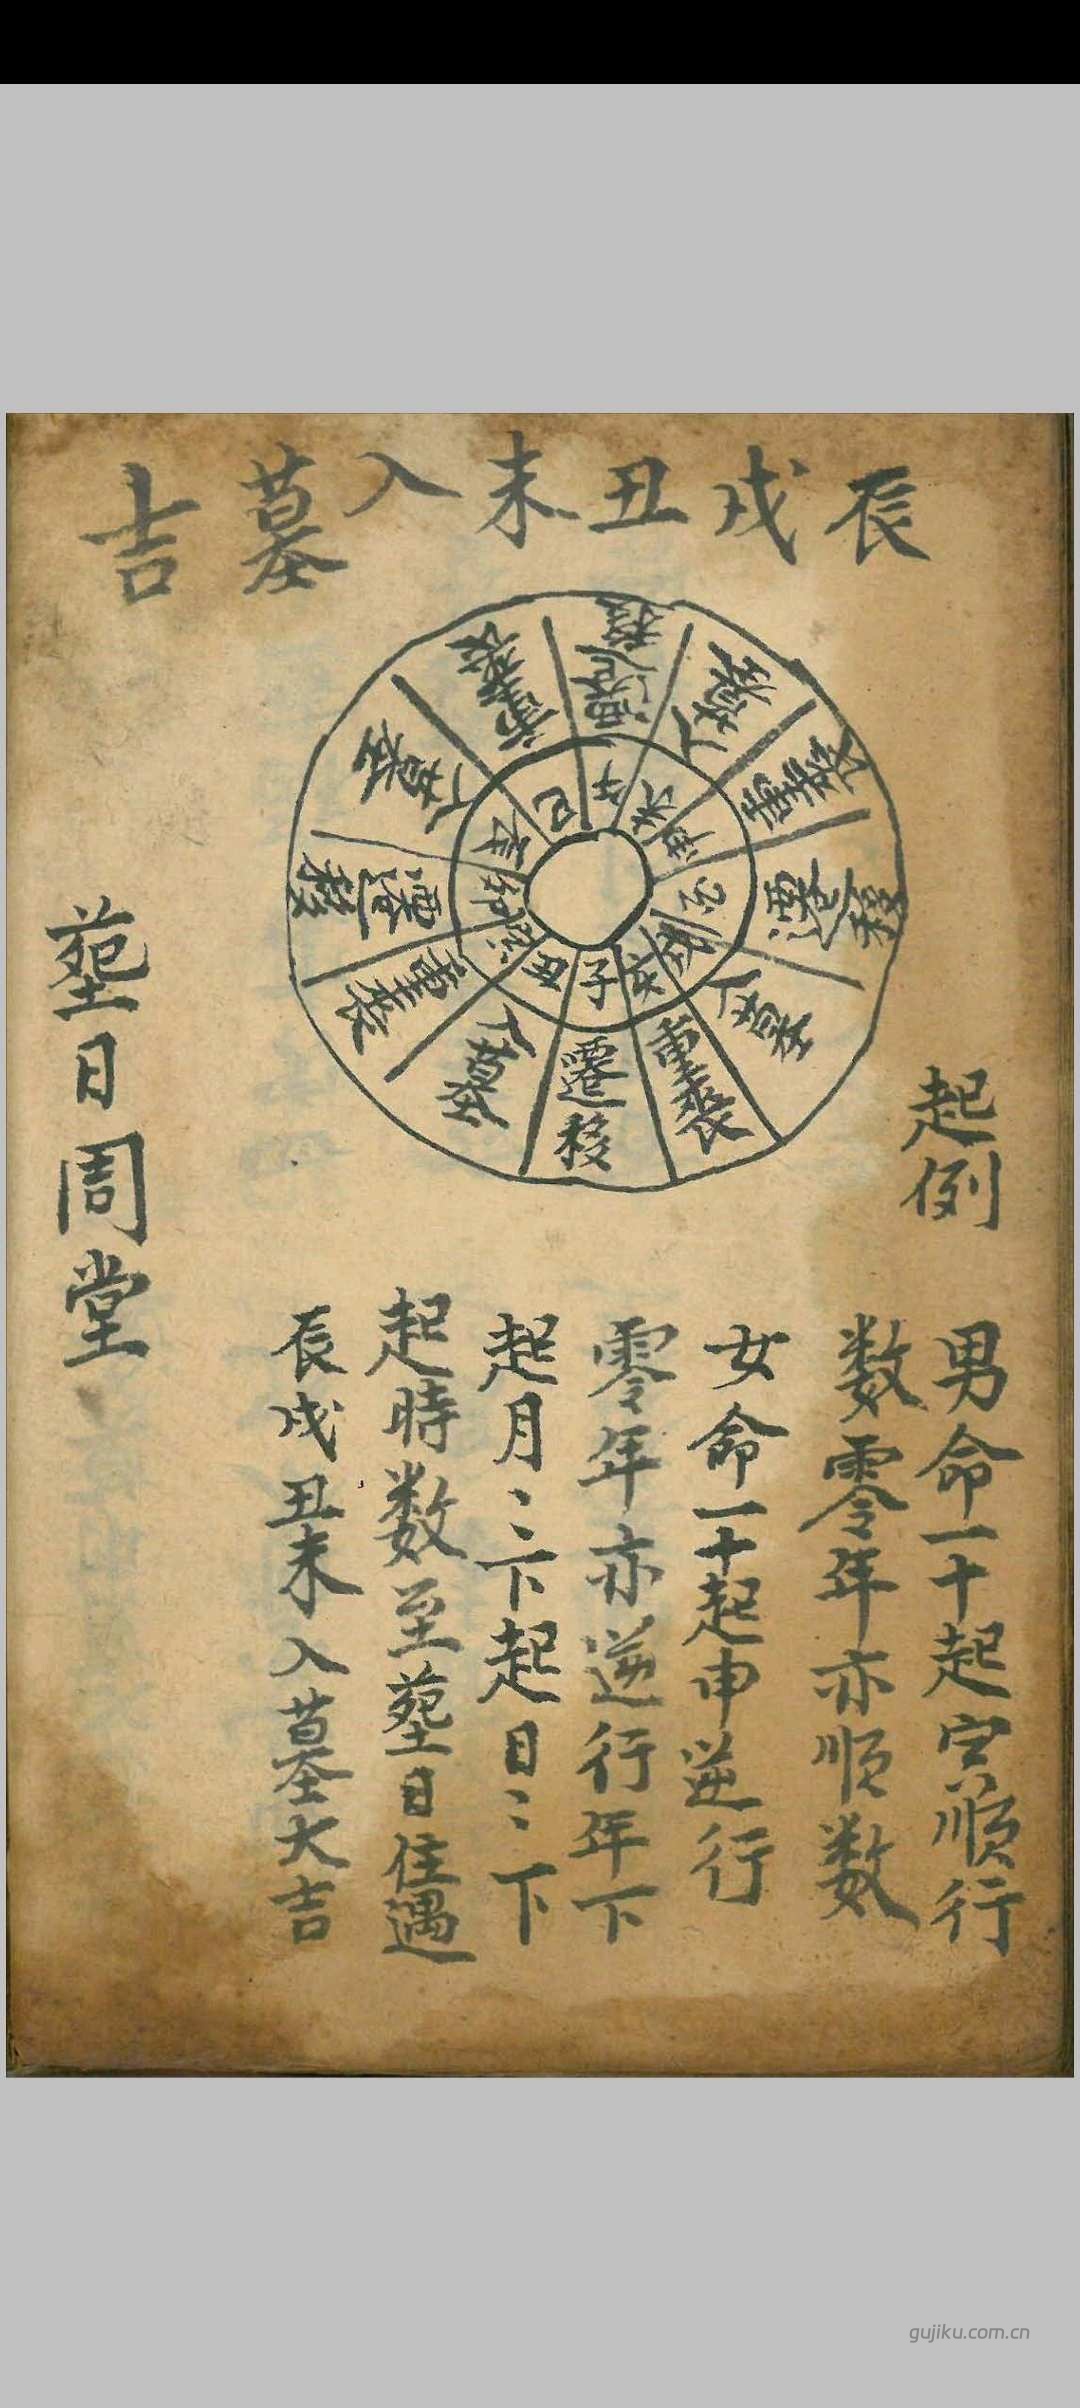 辰戌丑未入墓吉
起例
男命一十起寅順行
数零年亦順数
女命一十起申逆行
零年亦逆行年下
起月〻下起日〻下
起時数至塟日住遇
辰戌丑未入墓大吉
塟日周堂
子
丑
寅
卯
辰
巳
午
未
申
酉
戌
遷移
入墓
重喪
遷移
入墓
重喪
遷移
入墓
重喪
遷移
入墓
重喪
gujiku.com.cn